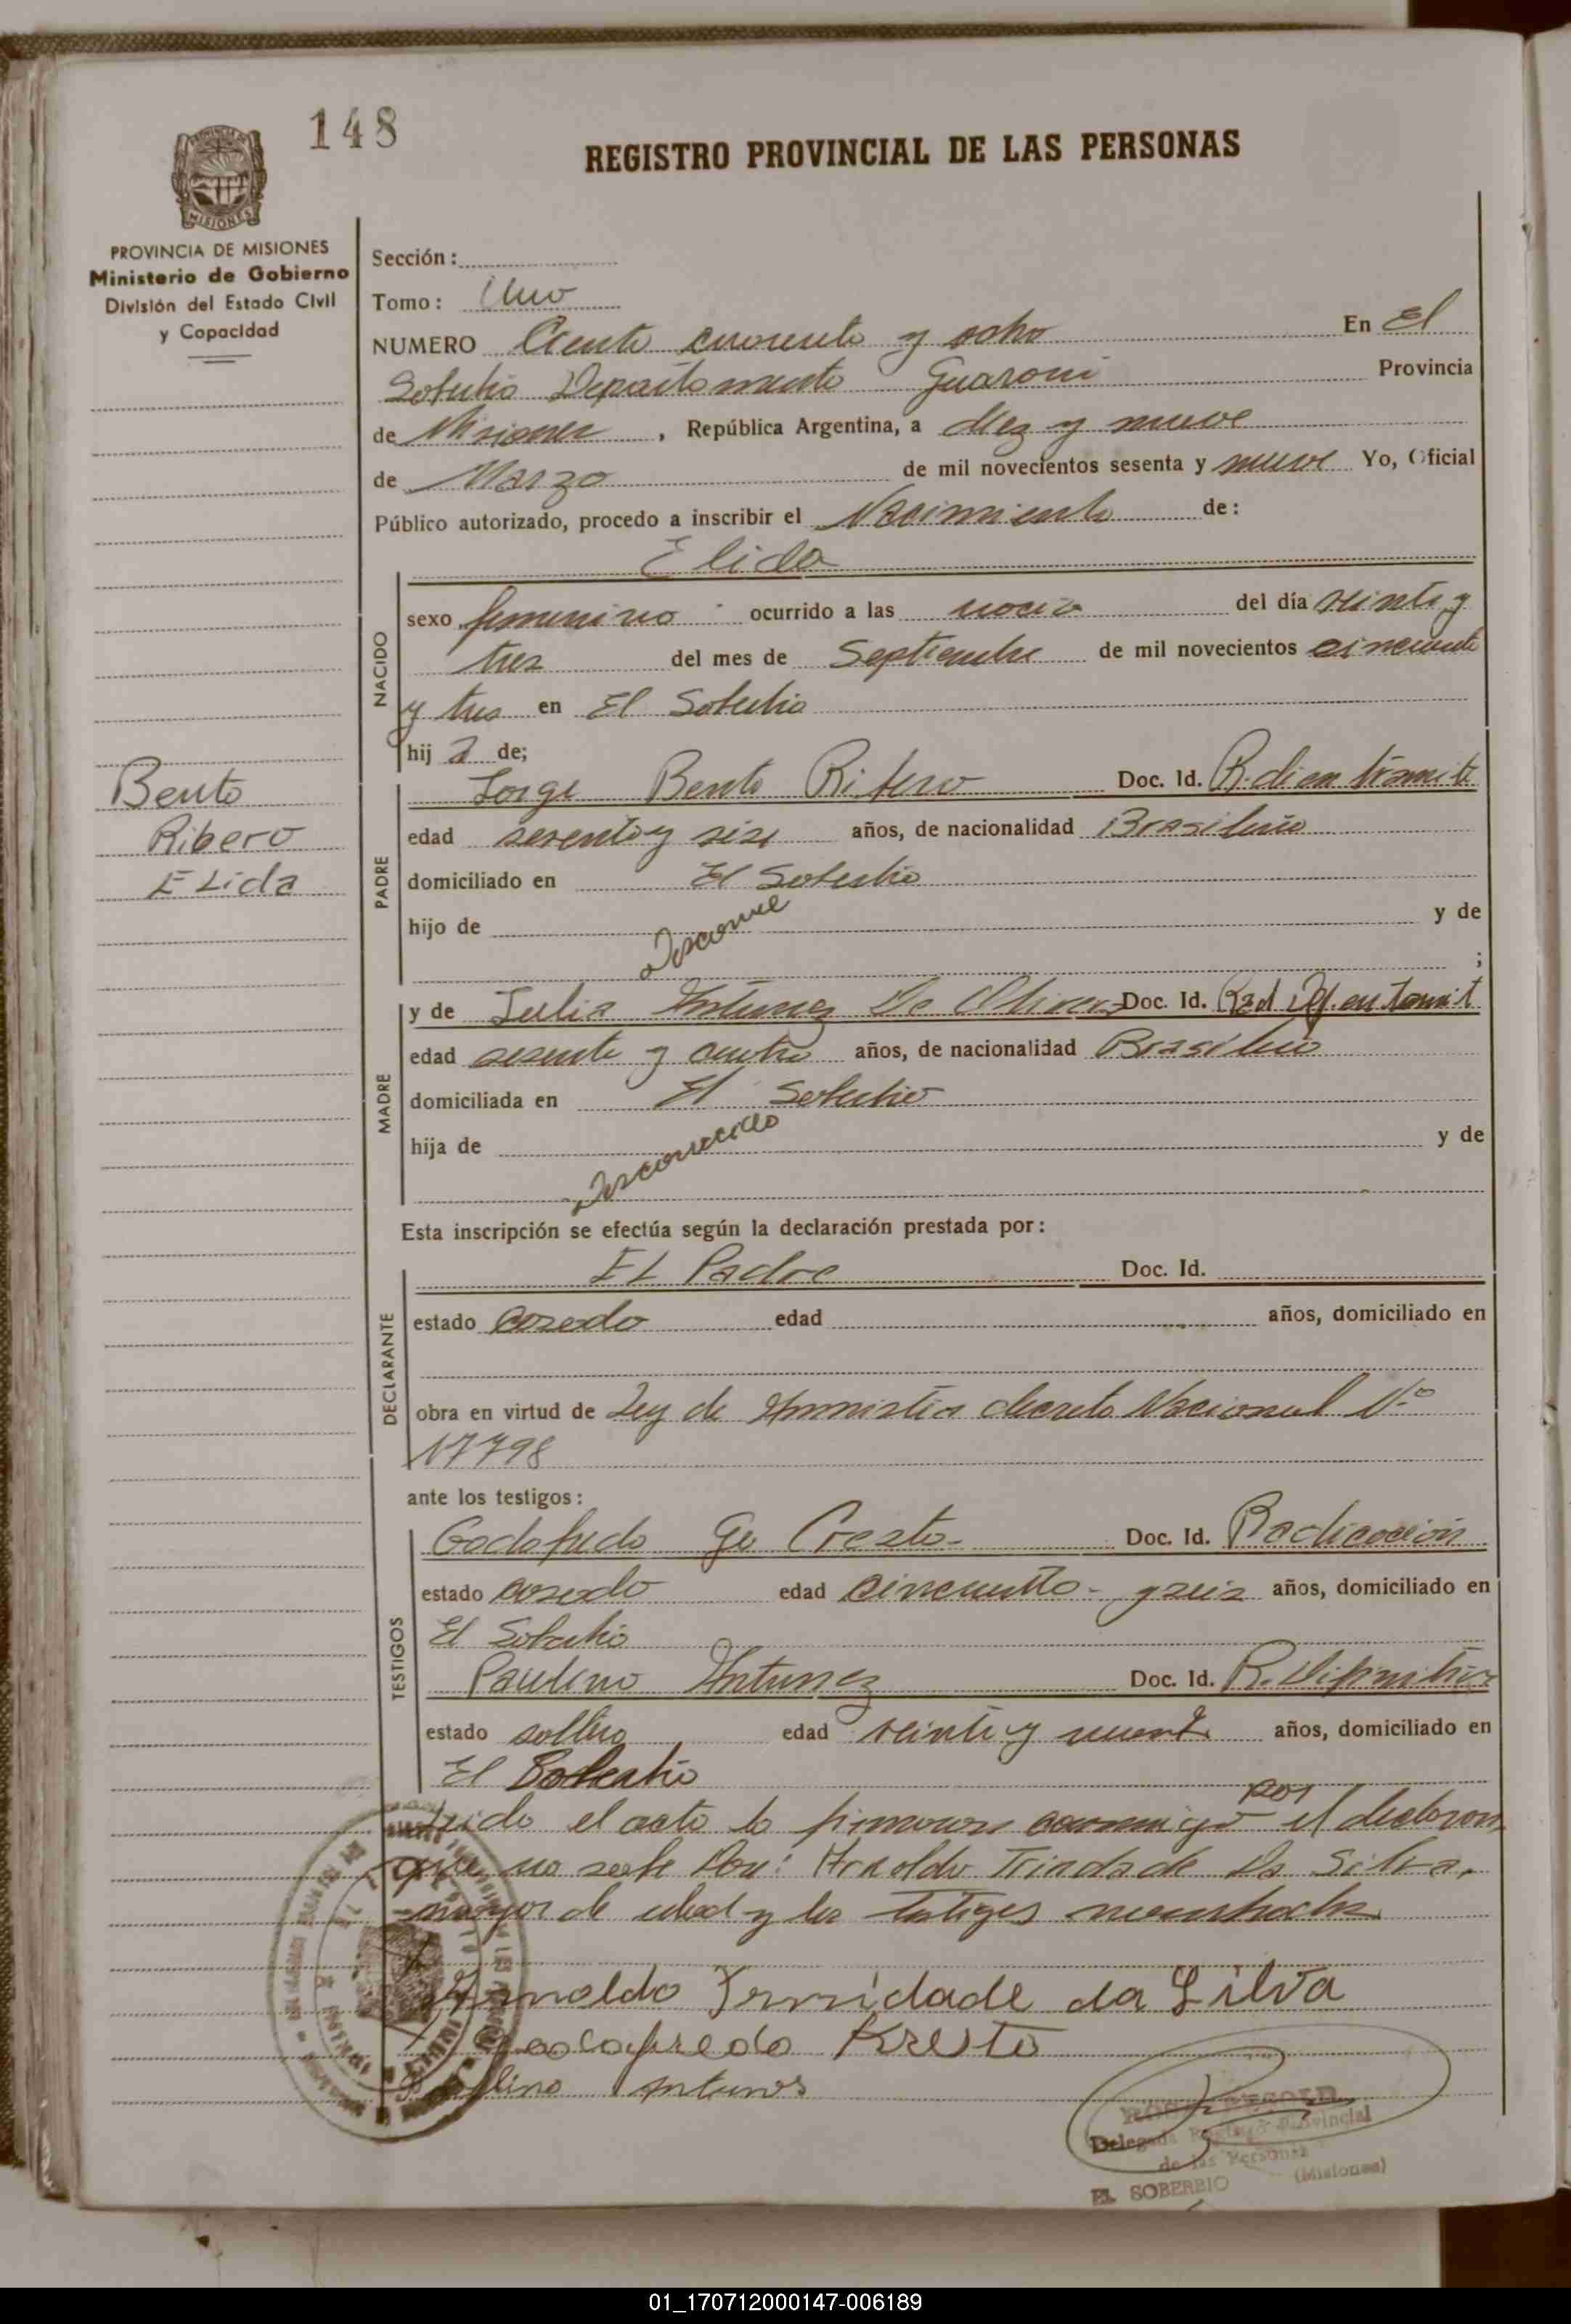 148
REGISTRO PROVINCIAL DE LAS PERSONAS
PROVINCIA DE MISIONES
Ministerio de Gobierno
División del Estado Civil
y Capacidad
Sección:
Tomo: Uno
NUMERO Ciento cuarenta y ocho En El
Soberbio Departamento Guarani Provincia
de Misiones, República Argentina, a diez y nueve
de Marzo de mil novecientos sesenta y nueve Yo, Oficial
Público autorizado, procedo a inscribir el Nacimiento de:
Elida
NACIDO
sexo femenino ocurrido a las del día veinte y
tres del mes de Septiembre de mil novecientos cincuenta
y tres en El Soberbio
hija de;
Bento
Ribero
Elida
PADRE
Jorge Bento Ribero Doc. Id. R. di en tramite
edad sesenta y seis años, de nacionalidad Brasileño
domiciliado en El Soberbio
hijo de Desconoce y de
;
MADRE
y de Julia Antunez De Olivera Doc. Id. Rad Def. en tramit
edad sesenta y cuatro años, de nacionalidad Brasileño
domiciliada en El Soberbio
hija de Desconocido y de
Esta inscripción se efectúa según la declaración prestada por:
DECLARANTE
El Padre Doc. Id.
estado casado edad años, domiciliado en
obra en virtud de Ley de Amnistia decreto Nacional Nº
17798
ante los testigos:
TESTIGOS
Godofredo Cresto- Doc. Id. Radicación
estado casado edad cincuenta- y seis años, domiciliado en
El Soberbio
Paulino Antunez Doc. Id. R. Difinitiva
estado soltero edad veinte y años, domiciliado en
El Soberbio
Leido el acto lo firmaron conmigo por el declaran
que no sabe Don: Arnoldo Trindade Da Silva,
mayor de edad y los testigos
Arnoldo Trindade da Silva
Godofredo Kresto
Paulino Antunes
Delegada Registro Provincial
de las Personas
EL SOBERBIO (Misiones)
01_170712000147-006189